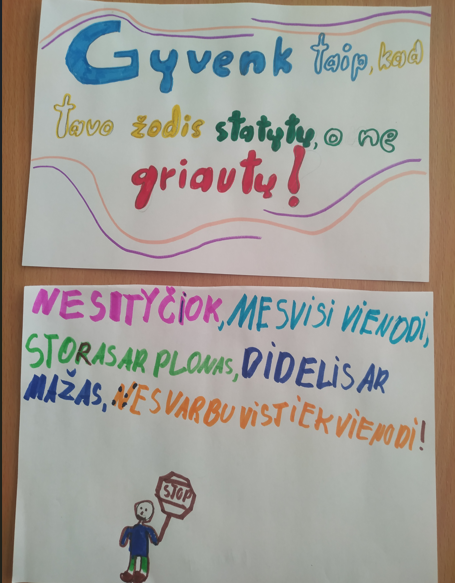 Gyvenk taip, kad
tavo žodis statytų, o ne
griautų!
NESITYČIOK, MES VISI VIENODI,
STORAS AR PLONAS, DIDELIS AR
MAŽAS, NESVARBU VISTIEK VIENODI!
STOP